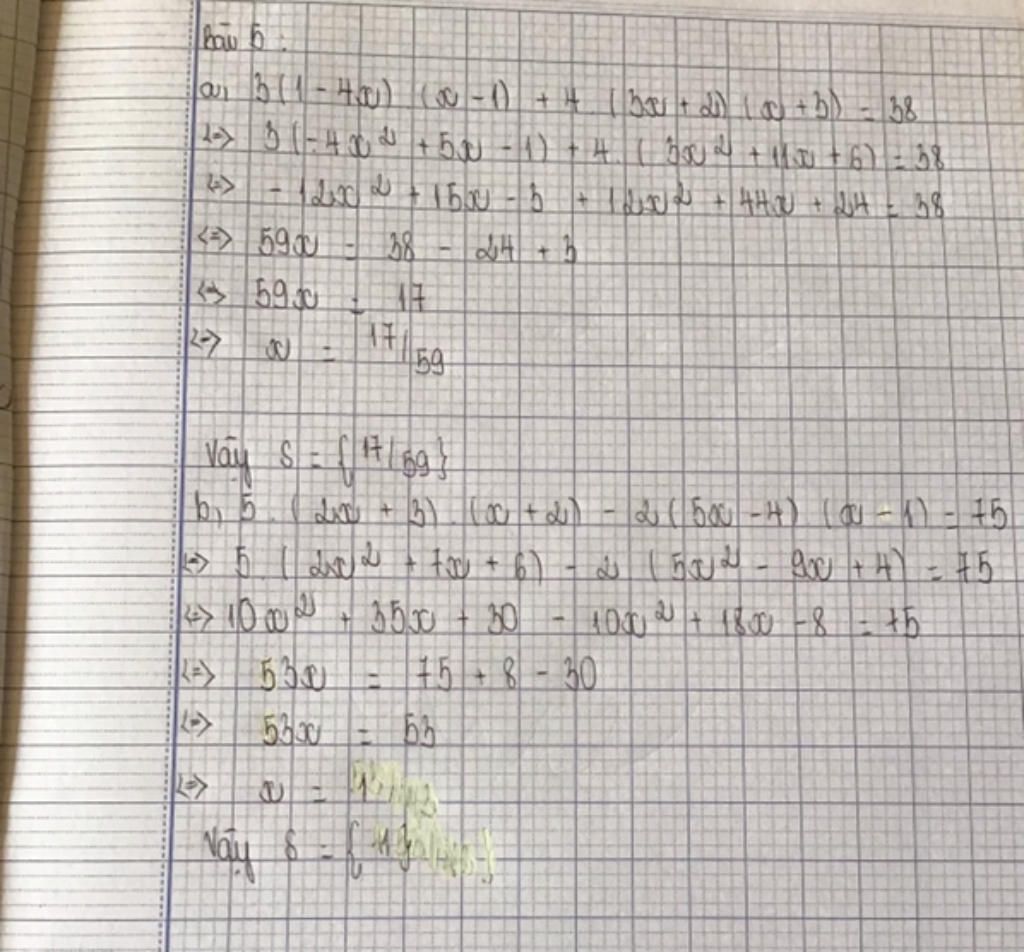 Bài 5 :
a, 3(1 - 4x) (x - 1) + 4 (3x + 2) (x + 3) = 38
<=> 3(-4x² + 5x - 1) + 4. (3x² + 11x + 6) = 38
<=> -12x² + 15x - 3 + 12x² + 44x + 24 = 38
<=> 59x = 38 - 24 + 3
<=> 59x = 17
<=> x = 17/59
Vậy S = {17/59}
b, 5. (2x + 3). (x + 2) - 2(5x - 4) (x - 1) = 75
<=> 5. (2x² + 7x + 6) - 2 (5x² - 9x + 4) = 75
<=> 10x² + 35x + 30 - 10x² + 18x - 8 = 75
<=> 53x = 75 + 8 - 30
<=> 53x = 53
<=> x = 1
Vậy S = {1}